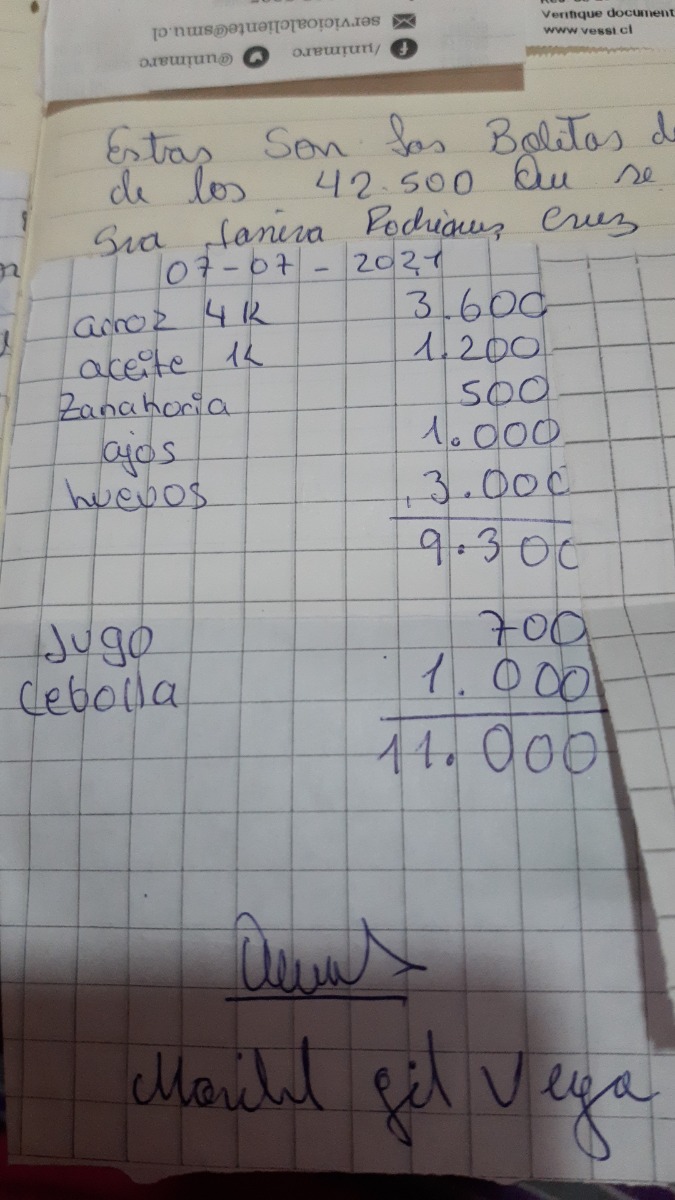 servicioalcliente@smu.cl
/unimarc @unimarc
Verifique document
www.vessi.cl
Estas Son las Boletas d
de los 42.500 Qu se
Sra Janira Rodrigues Cruz
07-07-2021
arroz 4K 3.600
aceite 1K 1.200
Zanahoria 500
ajos 1.000
huevos 3.000
9.300
Jugo 700
Cebolla 1.000
11.000
Gil Vega